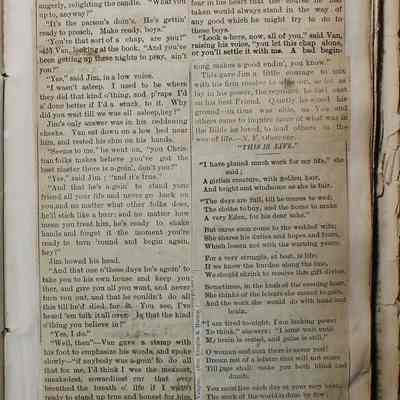 angerly, relighting the candle. "What you
up to, anyway?"
"It's the parson's doin's. He's gettin'
ready to preach. Make ready, boys."
"You're that sort of a chap, are you?"
said Van, looking at the book. "And you've
been getting up these nights to pray, ain't
you?"
"Yes," said Jim, in a low voice.
"I wasn't asleep. I used to be where
they did that kind o' thing, and p'raps I'd
o' done better if I'd a stuck to it. Why
did you wait till we was all asleep, hey?"
Jim's only answer was in his reddening
cheeks. Van sat down on a low bed near
him, and rested his chin on his hands.
"Seems to me," he went on, "you Chris-
tian folks makes believe you've got the
best master there is a-goin', don't you?"
"Yes," said Jim; "and it's true."
"And that he's a-goin' to stand your
friend all your life and never go back on
you, and no matter what other folks does,
he'll stick like a burr; and no matter how
mean you treat him, he's ready to shake
hands and forget it the moment you're
ready to turn 'round and begin again,
hey?"
Jim bowed his head.
"And that one o' these days he's a-goin' to
take you to his own house and keep you
there, and give you all you want, and never
turn you out, and that he couldn't do all
this till he'd died for it. You see, I've
heard 'em talk it all over. Is that the kind
o' thing you believe in?"
"Yes, I do."
"Well, then"—Van gave a stamp with
his foot to emphasize his words, and spoke
slowly—"if anybody was a-goin' to do all
that for me, I'd think I was the meanest,
sneakedest, cowardliest cur that ever
breathed the breath o' life if I wasn't
ready to stand up true and honest for him
fear in his heart that the course he had
taken would always stand in the way of
any good which he might try to do to
these boys.
"Look a-here, now, all of you," said Van,
raising his voice, "you let this chap alone,
or you'll settle it with me. A bad begin-
ning makes a good endin', you know."
This gave Jim a little courage to
with his firm resolve to so far as
lay in his power, the reproach he had cast
on his best Friend. Quietly he stood his
ground
others come to inquire more of what was in
the Bible he loved, to lead others in the
way of life.—N. Y. Observer.
"THIS IS LIFE."
"I have planned much work for my life," she
said;
A girlish creature, with golden hair,
And bright and winsome as she is fair.
"The days are full, till he comes to wed;
The clothes to buy, and the home to make
A very Eden, for his dear sake."
But cares soon come to the wedded wife;
She shares his duties and hopes and fears,
Which lessen not with the warning years.
For a very struggle, at best, is life;
If we knew the burden along the line,
We should shrink to receive this gift divine.
Sometimes, in the hush of the evening hour,
She thinks of the leisure she meant to gain,
And the work she would do with hand and
brain.
"I am tired to-night; I am lacking power
To think," she answers; "I must wait until
My brain is rested, and pulse is still."
O woman and man there is never rest!
Dream not of a leisure that will not come
Till age shall make you both blind and
dumb.
You must live each day at your very best,
The work of the world is done by few;